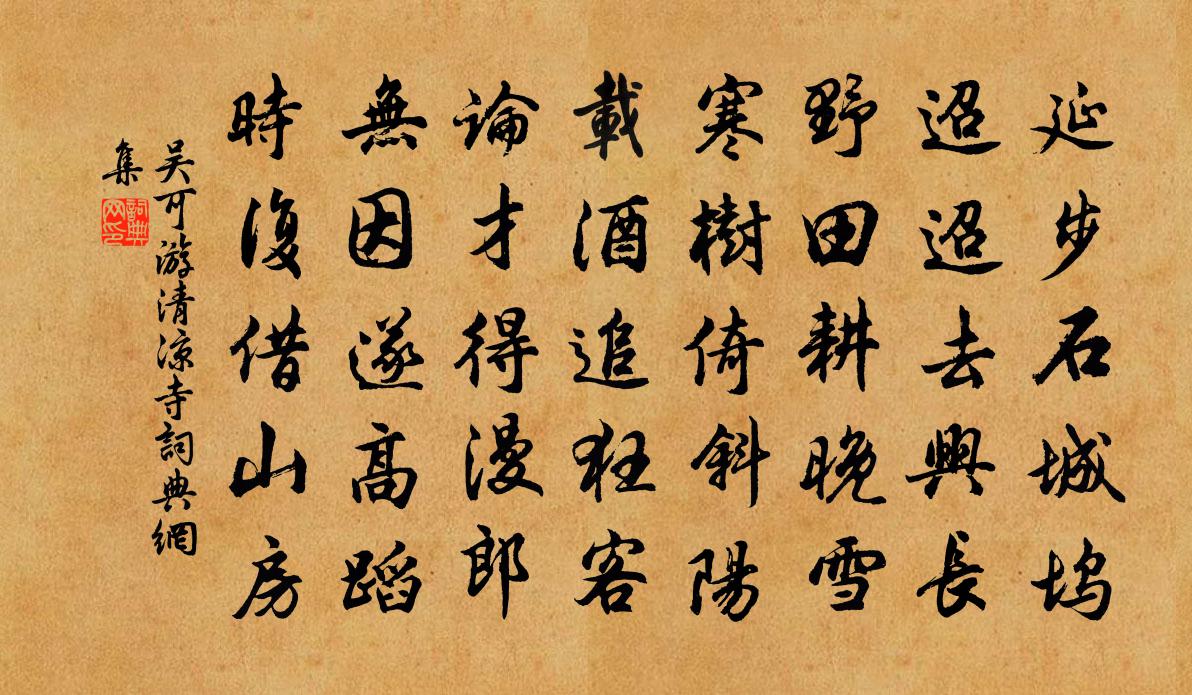 延步石城坞
迢迢去興長
野田耕晚雪
寒樹倚斜陽
載酒追狂客
論才得漫郎
無因遂高蹈
時復借山房
吴可游清凉寺詞典網
集
詞典
网印